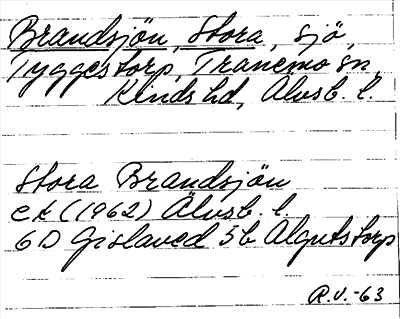 Brandsjön, Stora, sjö,
Tyggestorp, Tranemo sn,
Kinds hd, Älvsb. l.
Stora Brandsjön
ek (1962) Älvsb. l.
6D Gislaved 5b Algutstorp
R.V.-63